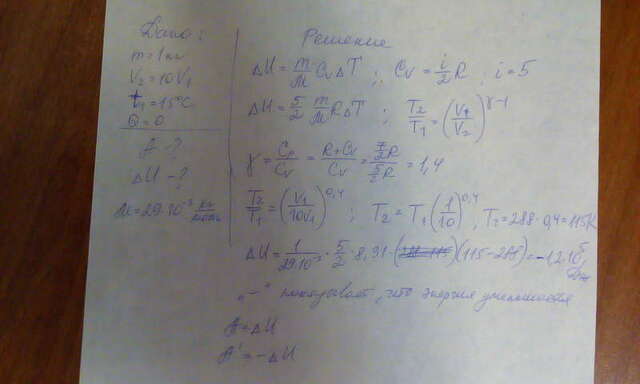 Дано:
m = 1 кг
V₂ = 10V₁
t₁ = 15°C
Q = 0
A - ?
ΔU - ?
M = 29·10⁻³ кг/моль
Решение
ΔU = m/M C_V ΔT ; C_V = i/2 R , i = 5
ΔU = 5/2 m/M RΔT ; T₂/T₁ = (V₁/V₂)^(γ-1)
γ = C_p/C_V = (R + C_V)/C_V = (7/2 R)/(5/2 R) = 1,4
T₂/T₁ = (V₁/10V₁)^0,4 ; T₂ = T₁ (1/10)^0,4 , T₂ = 288·0,4 = 115K
ΔU = 1/29·10⁻³ · 5/2 · 8,31 · (115 - 288) = -1,2·10⁵ Дж
„-" показывает, что энергия уменьшается
A = ΔU
A' = -ΔU